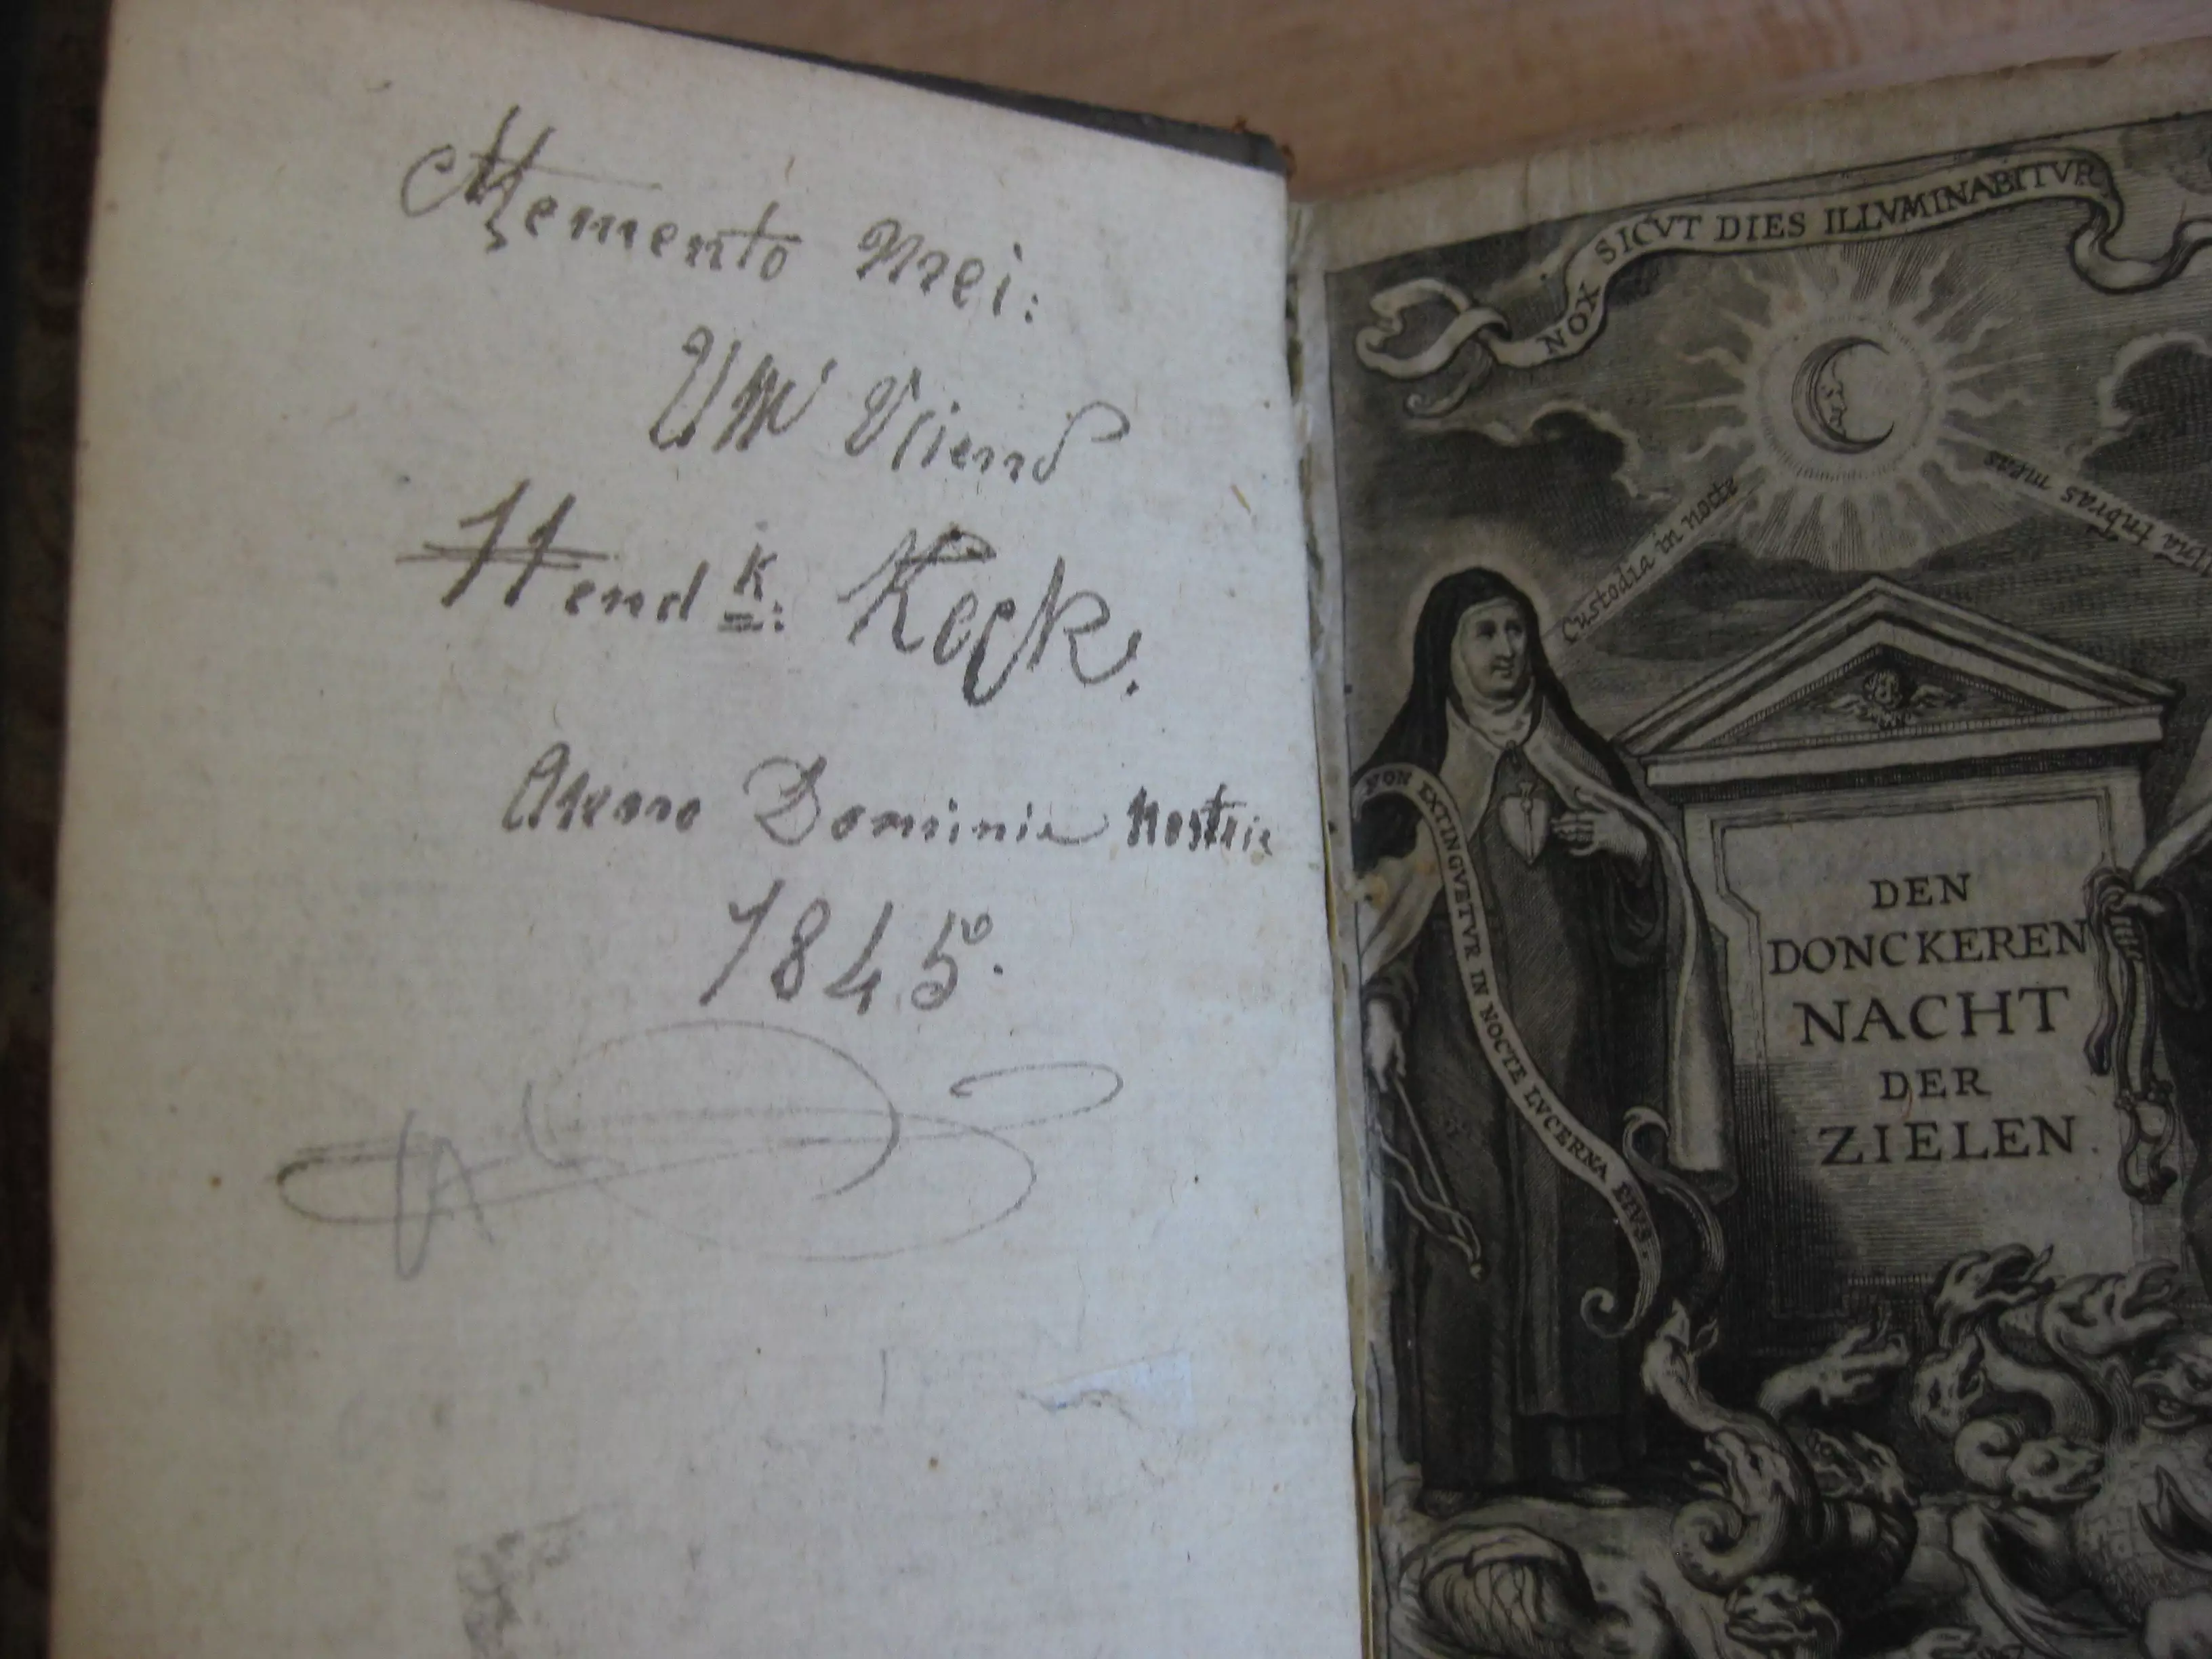 Memento Mei:
UW Vriend
Hend k: Kock.
Anno Dominie Nostrie
1845°.
NOX SICVT DIES ILLVMINABITVR
Custodia in nocte
meas
NON EXTINGVETVR IN NOCTE LVCERNA EIVS.
DEN
DONCKEREN
NACHT
DER
ZIELEN.